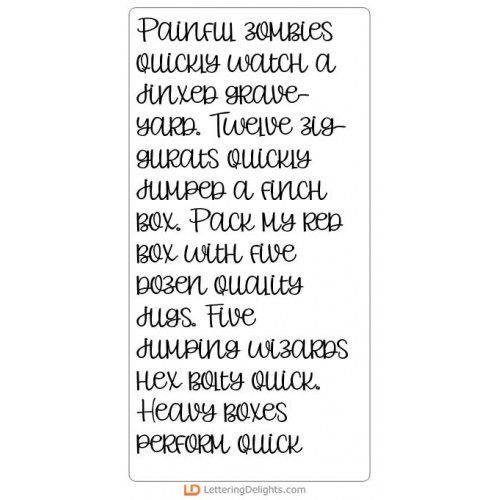 Painful zombies
quickly watch a
jinxed grave-
yard. Twelve zig-
gurats quickly
jumped a finch
box. Pack my red
box with five
dozen quality
jugs. Five
jumping wizards
hex bolty quick.
Heavy boxes
perform quick
LD LetteringDelights.com